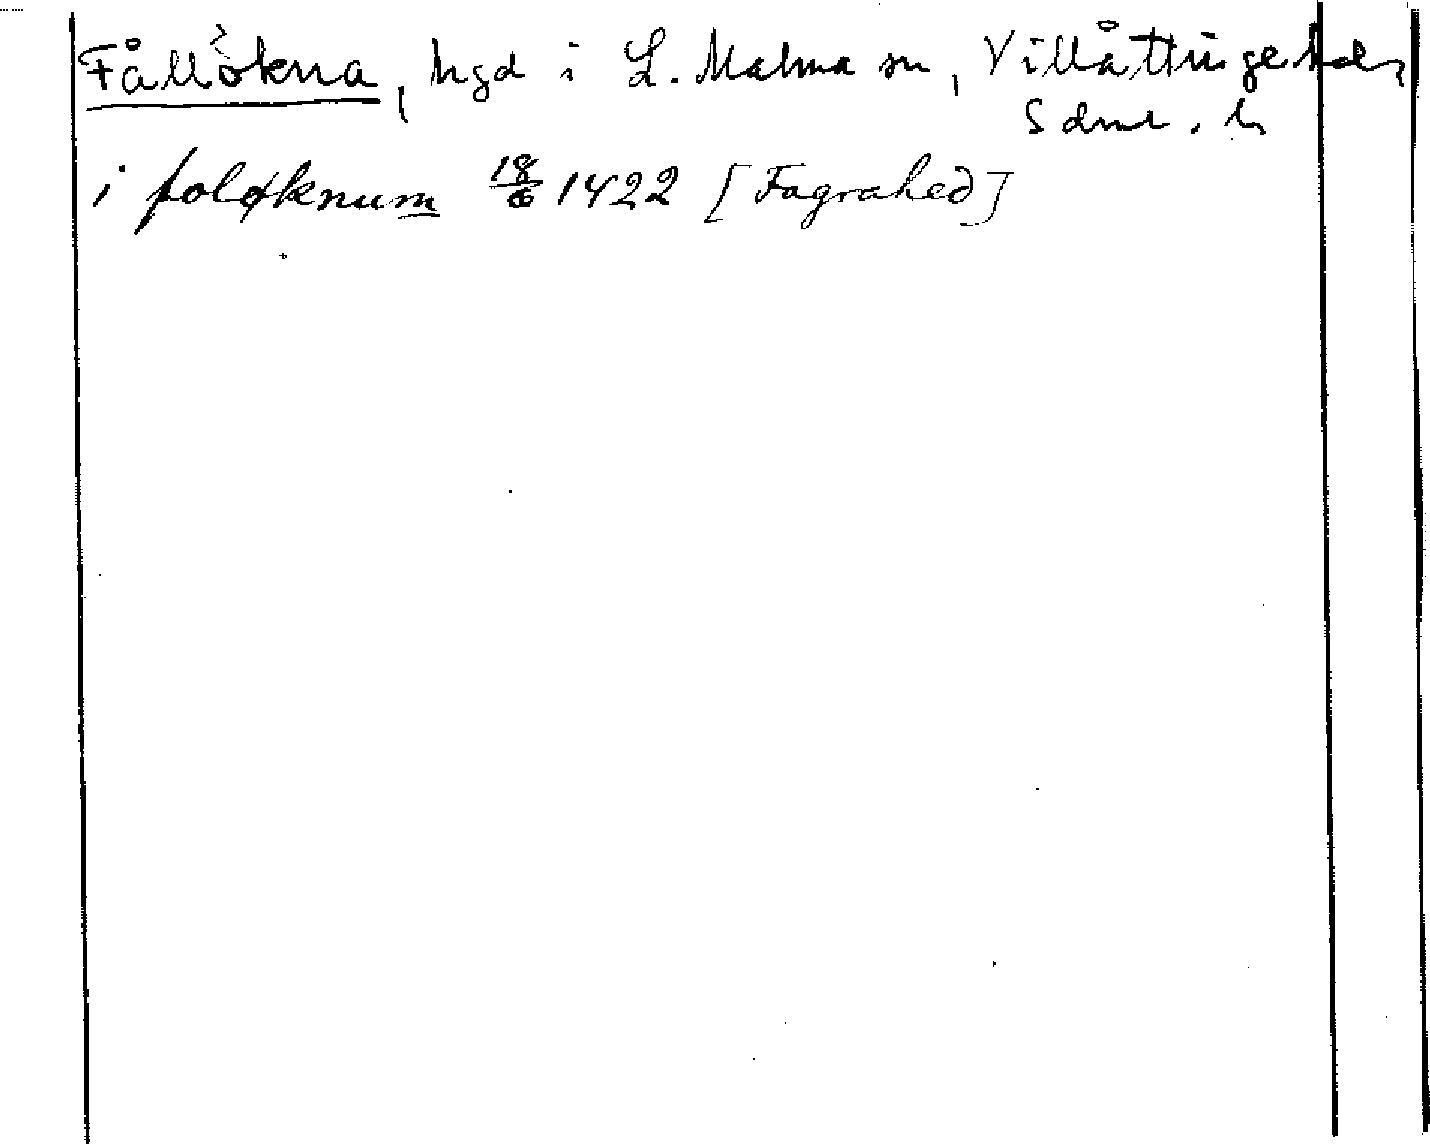 Fållökna, hgd i L. Malma sn, Villåttinge hd,
Sdml. ln
i foløknum 18/6 1422 [Fagrahed]